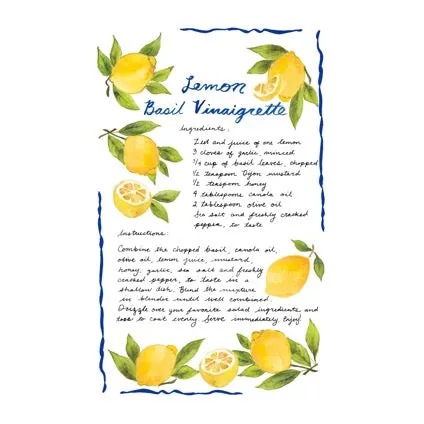 Lemon
Basil Vinaigrette
Ingredients:
Zest and juice of one lemon
3 cloves of garlic, minced
3/4 cup of basil leaves, chopped
1/2 teaspoon Dijon mustard
1/2 teaspoon honey
4 tablespoons canola oil
2 tablespoon olive oil
Sea salt and freshly cracked
pepper, to taste
Instructions:
Combine the chopped basil, canola oil,
olive oil, lemon juice, mustard,
honey, garlic, sea salt and freshly
cracked pepper, to taste in a
shallow dish. Blend the mixture
in blender until well combined.
Drizzle over your favorite salad ingredients and
toss to coat evenly. Serve immediately. Enjoy!